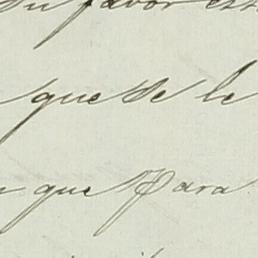 su favor est
que se le
n que para